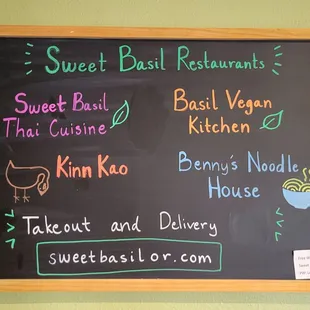 Sweet Basil Restaurants
Sweet Basil
Thai Cuisine
Basil Vegan
Kitchen
Kinn Kao
Benny's Noodle
House
Takeout and Delivery
sweetbasilor.com